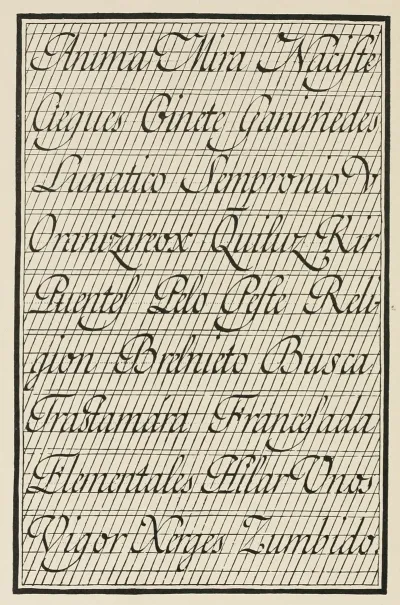 Anima Mira Naufte
Ciegues Ginete Ganimedes
Lunatico Sempronio V
Oranizareox Quiluz Kir
Puentes Pelo Peste Reli-
gion Brelnieto Busca
Trastamára Francesada
Elementales Hilar Unos
Vigor Xerges Zumbido.